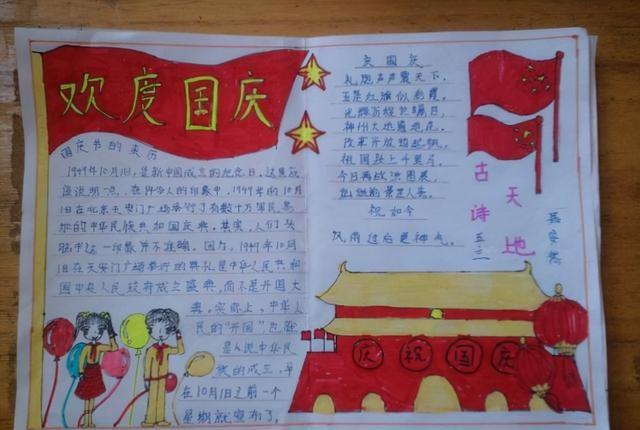 欢度国庆
国庆节的来历
1949年10月1日,是新中国成立的纪念日。这里应
该说明一点,在许多人的印象中,1949年的10月
1日在北京天安门广场举行了有数十万军民参
加的中华民族共和国庆典。其实,人们头
脑中这一印象并不准确。因为,1949年10月
1日在天安门广场举行的典礼是中华人民共和
国中央人民政府成立盛典,而不是开国大
典。实际上,中华人
民的"开国",也就
是人说中华民
族的成立,早
在10月1日之前一个
星期就宣布了。
贺国庆
礼炮声声震天下,
五星红旗似彩霞。
光辉历程
神州大地遍地花。
改革开放
今日再
祝如今
风雨过后更神气。
古诗
天地
五三
庆祝国庆